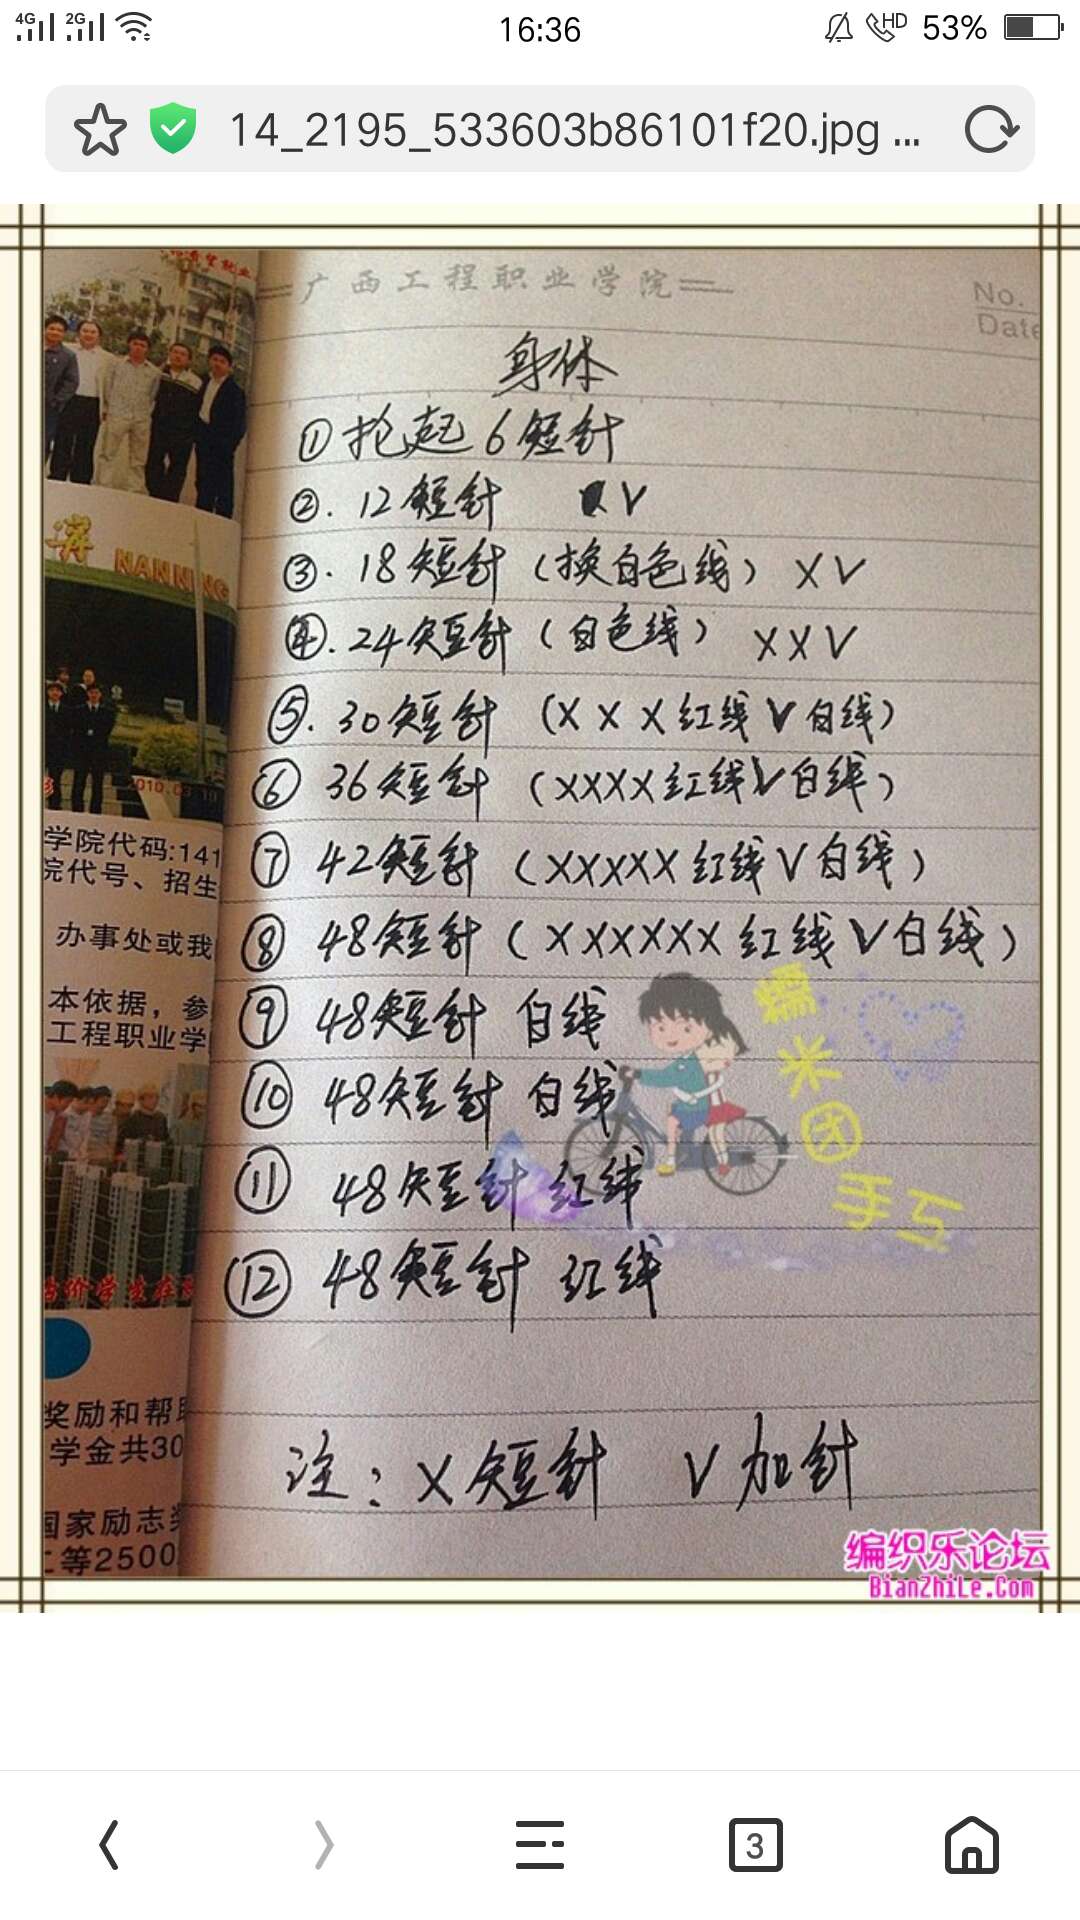 4G 2G 16:36 HD 53%
14_2195_533603b86101f20.jpg ...
广西工程职业学院
No.
Date
身体
①抢起6短针
②.12短针 V
③.18短针（换白色线）XV
④.24短针（白色线）XXV
⑤.30短针（XXX红线V白线）
⑥36短针（XXXX红线V白线）
⑦42短针（XXXXX红线V白线）
⑧48短针（XXXXXX红线V白线）
⑨48短针 白线
⑩48短针 白线
⑪48短针 红线
⑫48短针 红线
注：X短针 V加针
NANNING
2010.03.19
学院代码:141
院代号、招生
办事处或我
本依据，参
工程职业学
奖励和帮
学金共30
国家励志奖
等2500
糯米团手工
编织乐论坛
BianZhiLe.Com
3